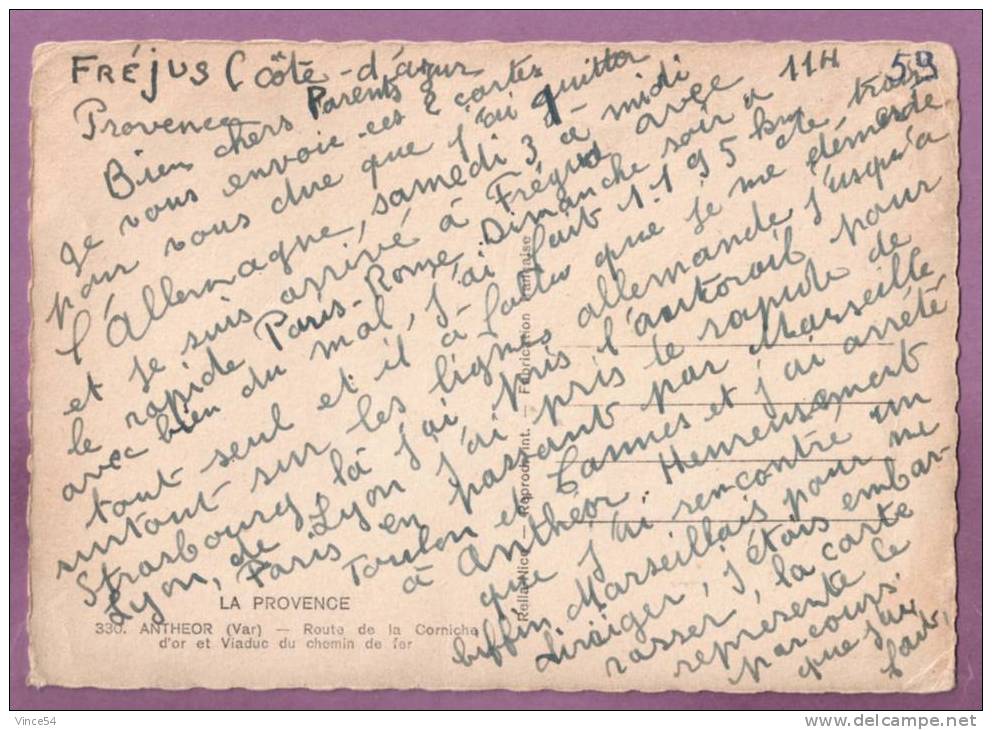 FRÉJUS (Côte-d'azur
Provence
11H
59
Bien chers Parents
Je vous envoie ces 2 cartes
pour vous dire que j'ai quitter
l'Allemagne, samedi 3 à midi
et je suis arrivé à Fréjus avec
le rapide Paris-Rome Dimanche soir à
avec bien du mal, j'ai fait 1.195 km, trois
tout seul et il à fallu que je me démerde
surtout sur les lignes allemande jusqu'à
Strasbourg, là j'ai pris l'autorail pour
Lyon, de Lyon j'ai pris le rapide de
Paris en passant par Marseille,
Toulon et Cannes et j'ai arrêté
à Anthéor Heureusement
que j'ai rencontré un
biffin Marseillais pour me
diraiger, j'étais embar-
rasser, la carte
représente le
parcours
que j'ai
fait,
Rella-Nice — Reprod. Int. — Fabrication française
LA PROVENCE
330. ANTHEOR (Var) — Route de la Corniche
d'or et Viaduc du chemin de fer
Vince54
www.delcampe.net